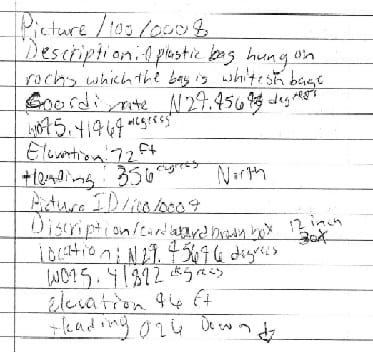 Picture / 100 / 0008
Description: A plastic bag hung on
rocks which the bag is whitesh bage
Coordinate N29.4569 degrees
W095.41964 degrees
Elevation: 72 ft
Heading: 356 degrees North
Picture ID / 100 / 0009
Discription / cardboard brown box 12 inch
location: N29.45696 degrees
W095.41892 degrees
elevation 46 ft
Heading 026 Down